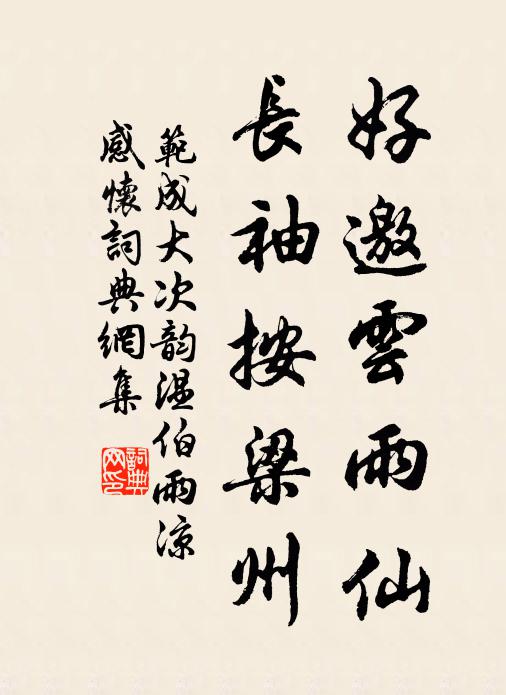 好邀雲雨仙
長袖按梁州
範成大次韵温伯雨凉
感懷詞典網集
詞典
网印